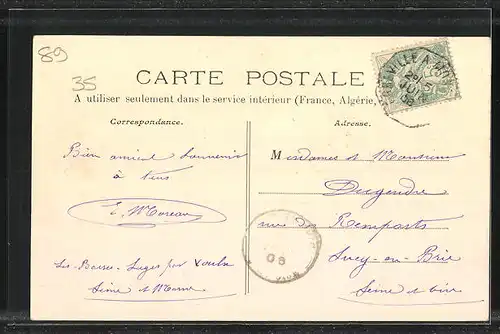 89
35
CARTE POSTALE
A utiliser seulement dans le service intérieur (France, Algérie,
Correspondance.
Adresse.
Bien amical Souvenir
à tous
E. Moreau
Les Basses-Loges par
Seine et Marne
Mesdames et Monsieur
Dugendre
rue des Remparts
Sucy-en-Brie
Seine et Oise
08